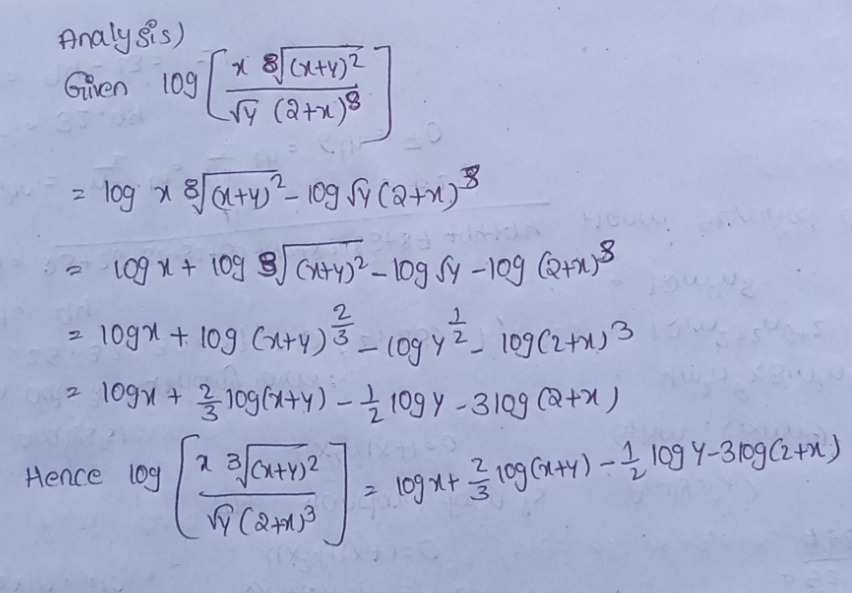 Analysis)
Given log [x ∛(x+y)² / √y (2+x)³]
= log x ∛(x+y)² - log √y (2+x)³
= log x + log ∛(x+y)² - log √y - log (2+x)³
= log x + log (x+y)^(2/3) - log y^(1/2) - log (2+x)³
= log x + 2/3 log(x+y) - 1/2 log y - 3 log (2+x)
Hence log [x ∛(x+y)² / √y (2+x)³] = log x + 2/3 log(x+y) - 1/2 log y - 3 log(2+x)